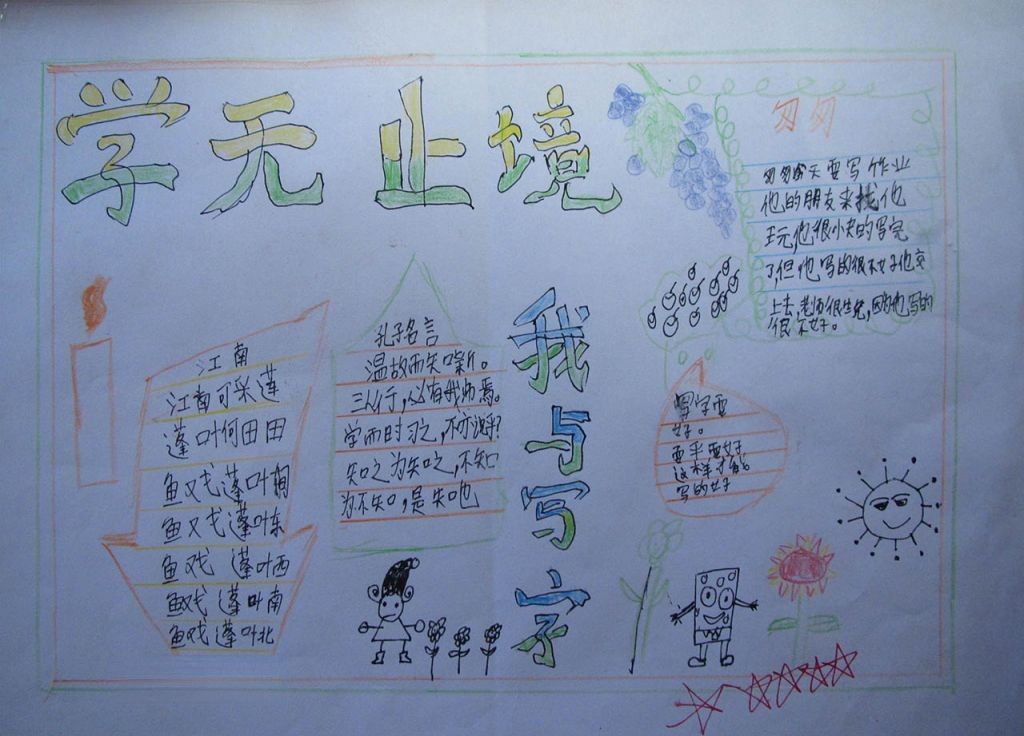 学无止境
匆匆
匆匆每天要写作业
他的朋友来找他
玩他很快的写完
了,但他写的很不好他交
上去,老师很生气,因为他写的
很不好。
江南
江南可采莲
莲叶何田田
鱼戏莲叶间
鱼戏莲叶东
鱼戏莲叶西
鱼戏莲叶南
鱼戏莲叶北
孔子名言
温故而知新。
三人行,必有我师焉。
学而时习之,不亦说乎?
知之为知之,不知
为不知,是知也
我与写字
写字要
好。
要平要好
这样才能
写的好